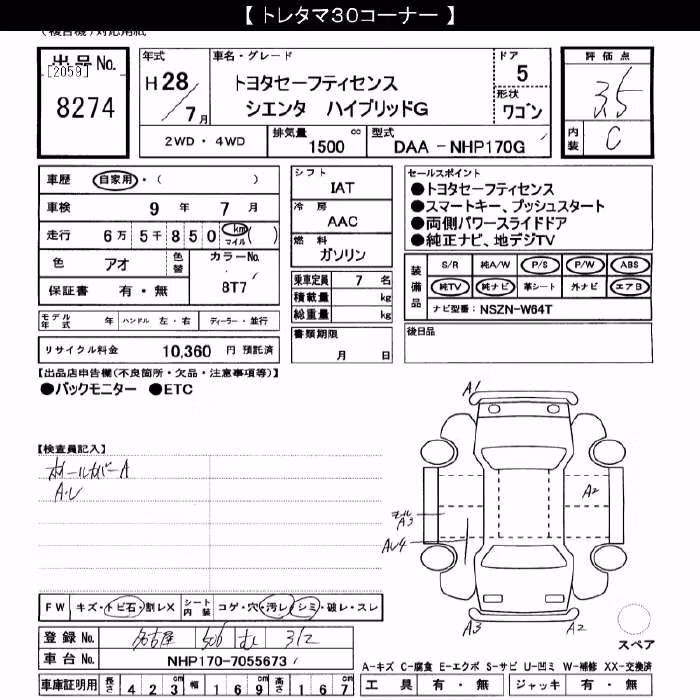 【 トレタマ30コーナー 】
(複合機)対応用紙
出品No.
[2059]
8274
年式
H 28/7月
車名・グレード
トヨタセーフティセンス
シエンタ ハイブリッドG
ドア
5
形状
ワゴン
評価点
3.5
内装
C
2WD・4WD
排気量 1500 cc
型式 DAA - NHP170G
車歴 自家用・( )
車検 9年 7月
走行 6万 5千 8 5 0 km マイル ( )
色 アオ 色替
カラーNo.
8T7
保証書 有・無
シフト
IAT
冷房
AAC
燃料
ガソリン
乗車定員 7 名
積載量 kg
総重量 kg
書類期限
月 日
セールスポイント
●トヨタセーフティセンス
●スマートキー、プッシュスタート
●両側パワースライドドア
●純正ナビ、地デジTV
装備品
S/R 純A/W P/S P/W ABS
純TV 純ナビ 革シート 外ナビ エアB
ナビ型番: NSZN-W64T
後日品
モデル年式 年 ハンドル 左・右 ディーラー・並行
リサイクル料金 10,360 円 預託済
【出品店申告欄(不良箇所・欠品・注意事項等)】
●バックモニター ●ETC
【検査員記入】
ホールカバーA
A.U
A1
A2
モール
A3
AU4
A3
A2
スペア
FW キズ・トビ石・割レX シート内装 コゲ・穴・汚レ・シミ・破レ・スレ
登録No. 名古屋 506 む 312
車台No. NHP170-7055673
車庫証明用 長さ 423cm 幅 169cm 高さ 167cm
A-キズ C-腐食 E-エクボ S-サビ U-凹ミ W-補修 XX-交換済
工具 有・無 ジャッキ 有・無